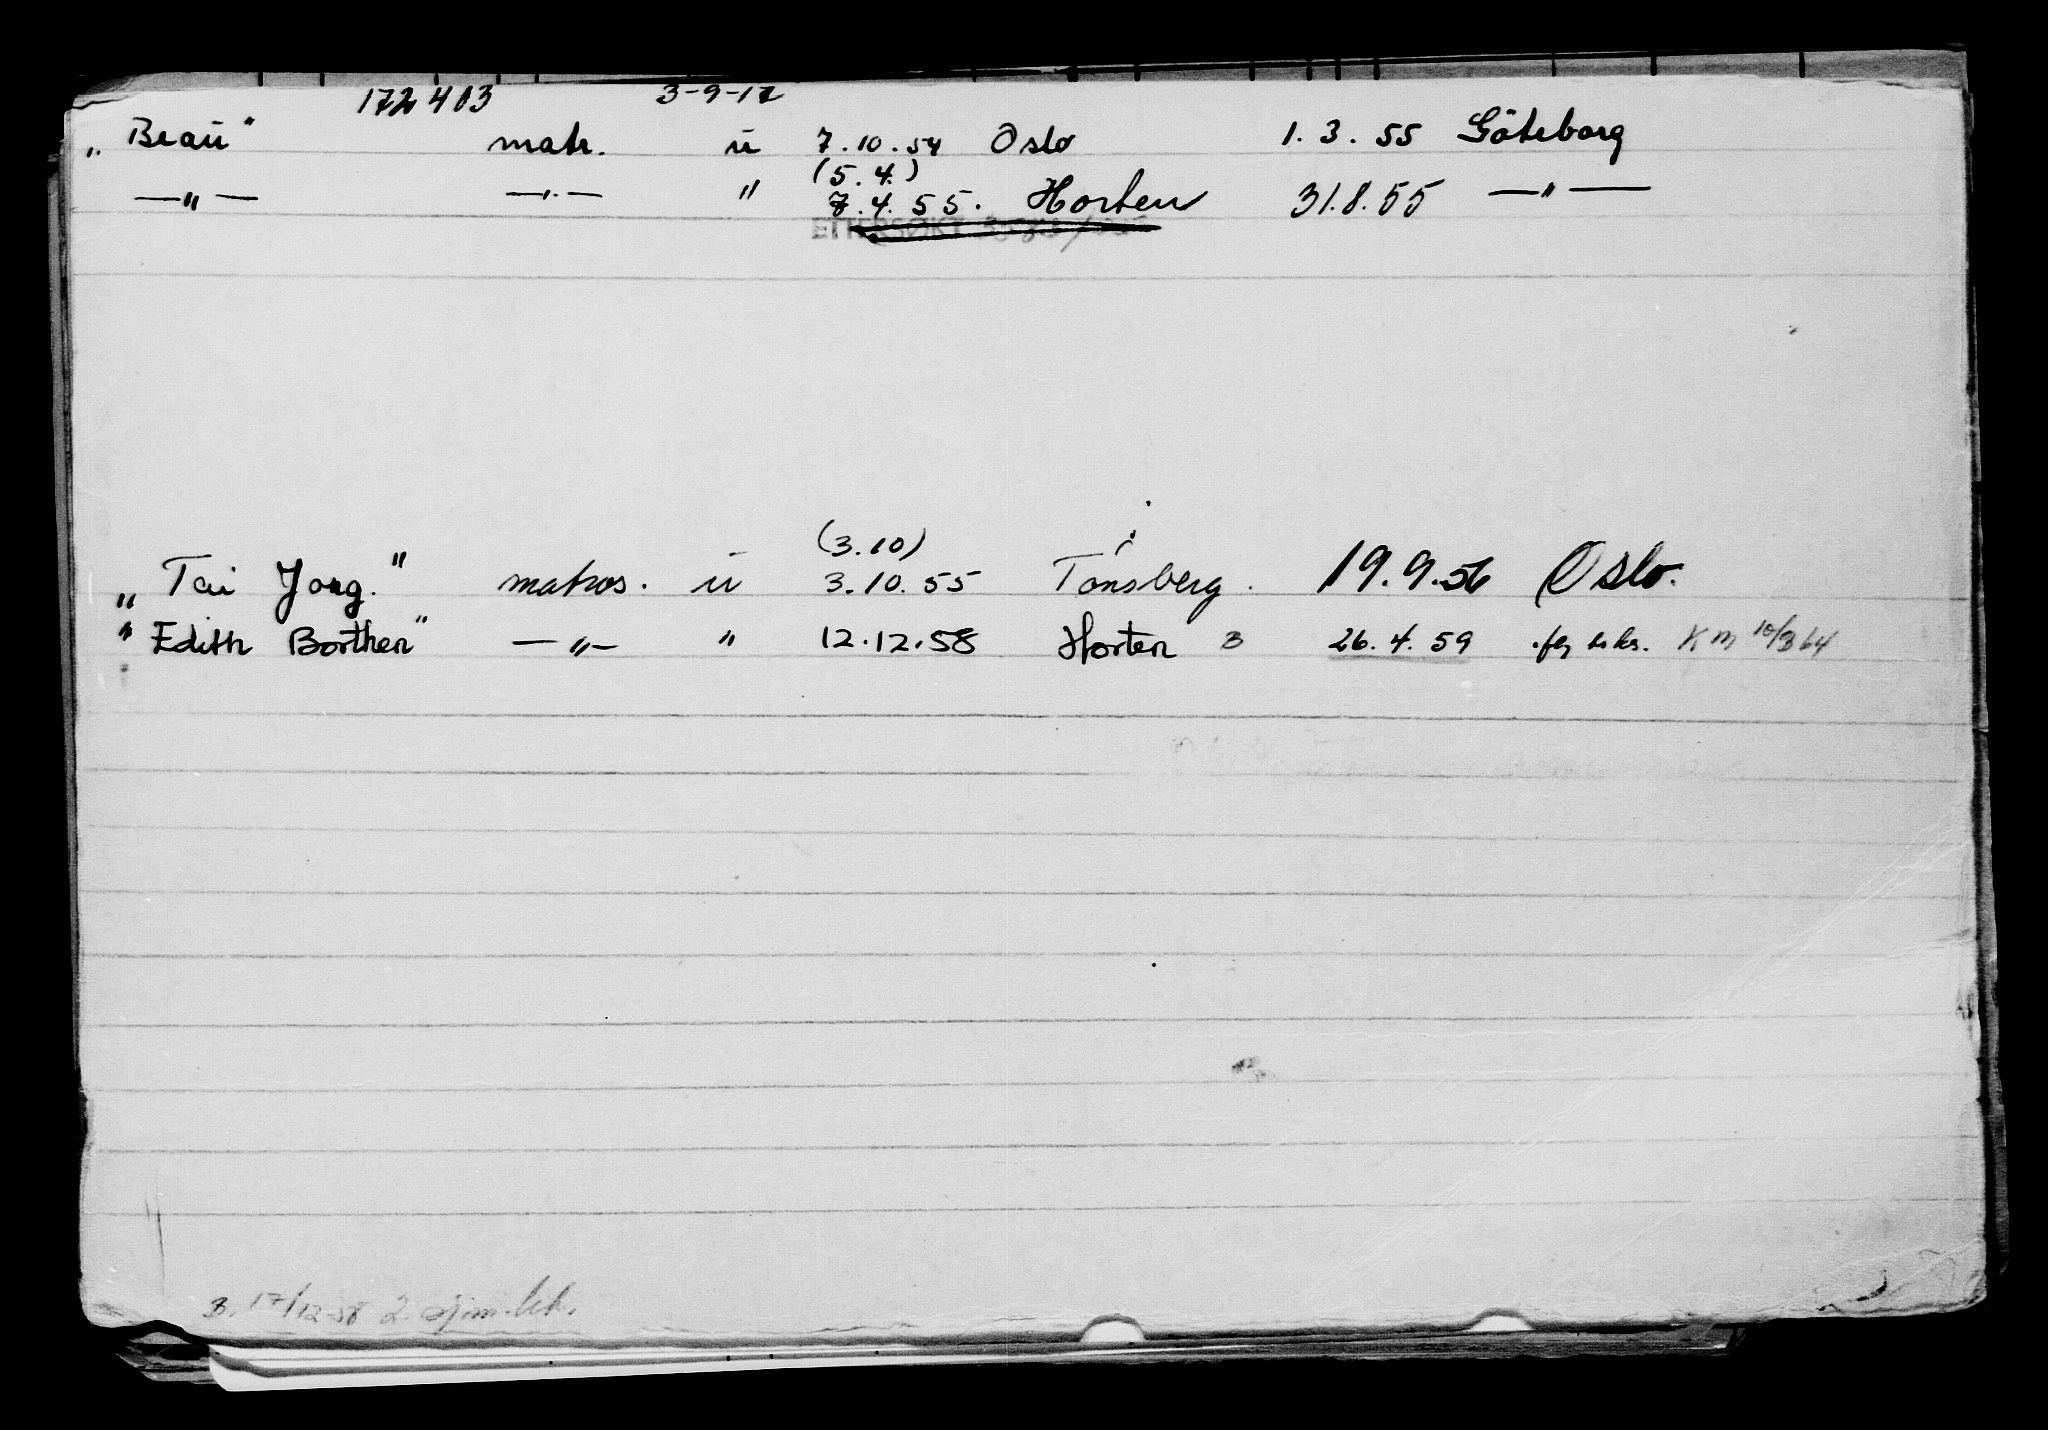 172413 3-9-17
„Beau" matr. u 7.10.54 Oslo 1.3.55 Göteborg
—"— —"— " (5.4.) 7.4.55. Horten 31.8.55 —"—
ETTERSØKT
(3.10)
„Tai Yang." matros. u 3.10.55 Tønsberg. 19.9.56 Oslo.
"Edith Borthen" —"— " 12.12.58 Horten B 26.4.59 KM 10/3 64
B. 17/12-58 2. sjøm.